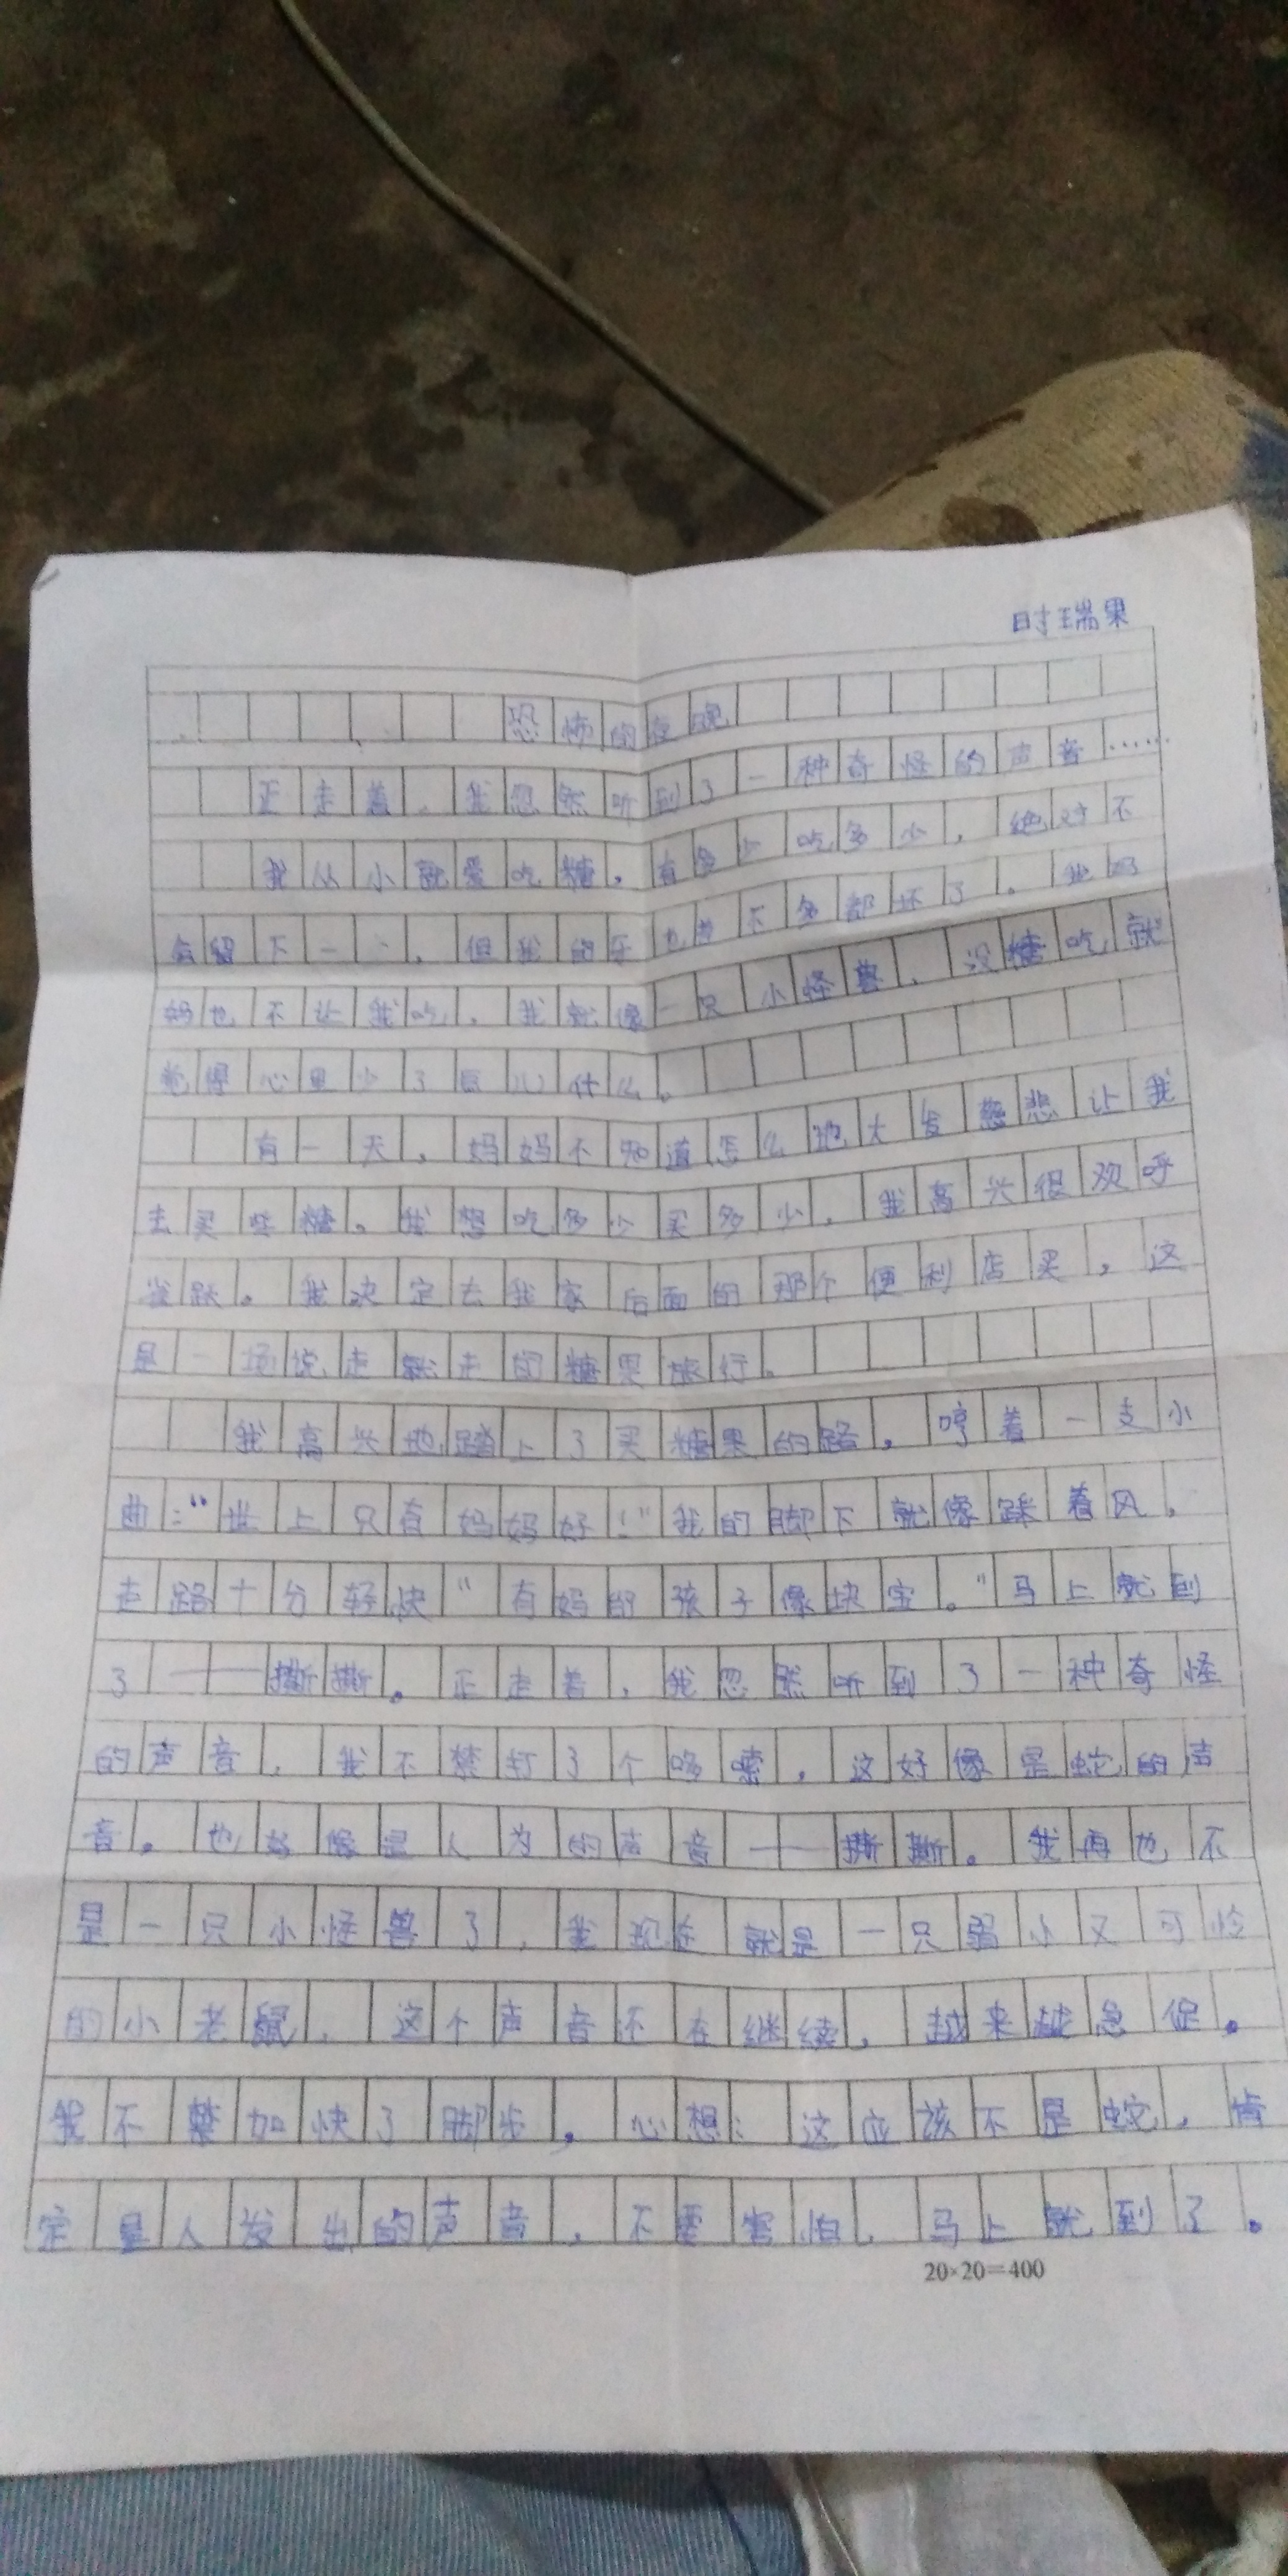 时瑞果
恐怖的夜晚
正走着，我忽然听到了一种奇怪的声音……
我从小就爱吃糖，有多少吃多少，绝对不
会留下一个，但我的牙也差不多都坏了。我妈
妈也不让我吃，我就像一只小怪兽，没糖吃就
觉得心里少了点儿什么。
有一天，妈妈不知道怎么地大发慈悲让我
去买些糖。我想吃多少买多少，我高兴很欢呼
雀跃。我决定去我家后面的那个便利店买，这
是一场说走就走的糖果旅行。
我高兴地踏上了买糖果的路，哼着一支小
曲：“世上只有妈妈好！”我的脚下就像踩着风，
走路十分轻快“有妈的孩子像块宝。”马上就到
了——撕撕。正走着，我忽然听到了一种奇怪
的声音，我不禁打了个哆嗦，这好像是蛇的声
音。也好像是人为的声音——撕撕。我再也不
是一只小怪兽了，我现在就是一只弱小又可怜
的小老鼠，这个声音还在继续，越来越急促。
我不禁加快了脚步，心想：这应该不是蛇，肯
定是人发出的声音，不要害怕，马上就到了。
20×20=400